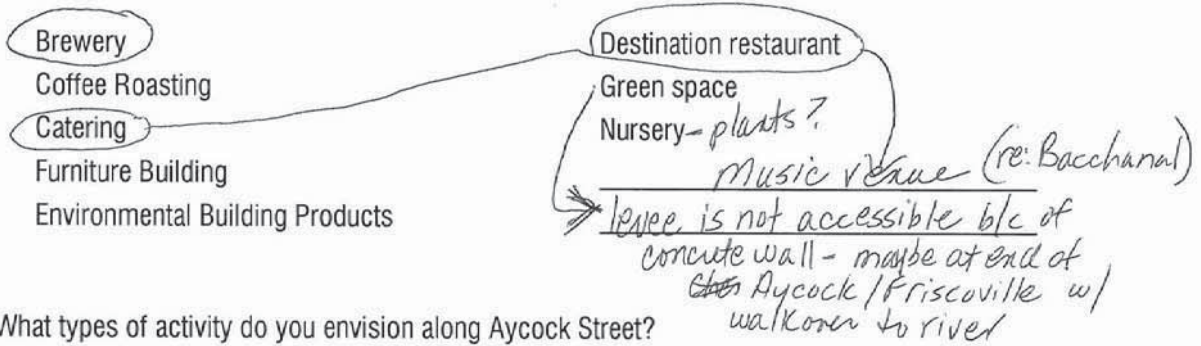 Brewery
Coffee Roasting
Catering
Furniture Building
Environmental Building Products
Destination restaurant
Green space
Nursery - plants?
Music venue (re: Bacchanal)
levee is not accessible b/c of
concrete wall - maybe at end of
Aycock/Friscoville w/
walkover to river
What types of activity do you envision along Aycock Street?